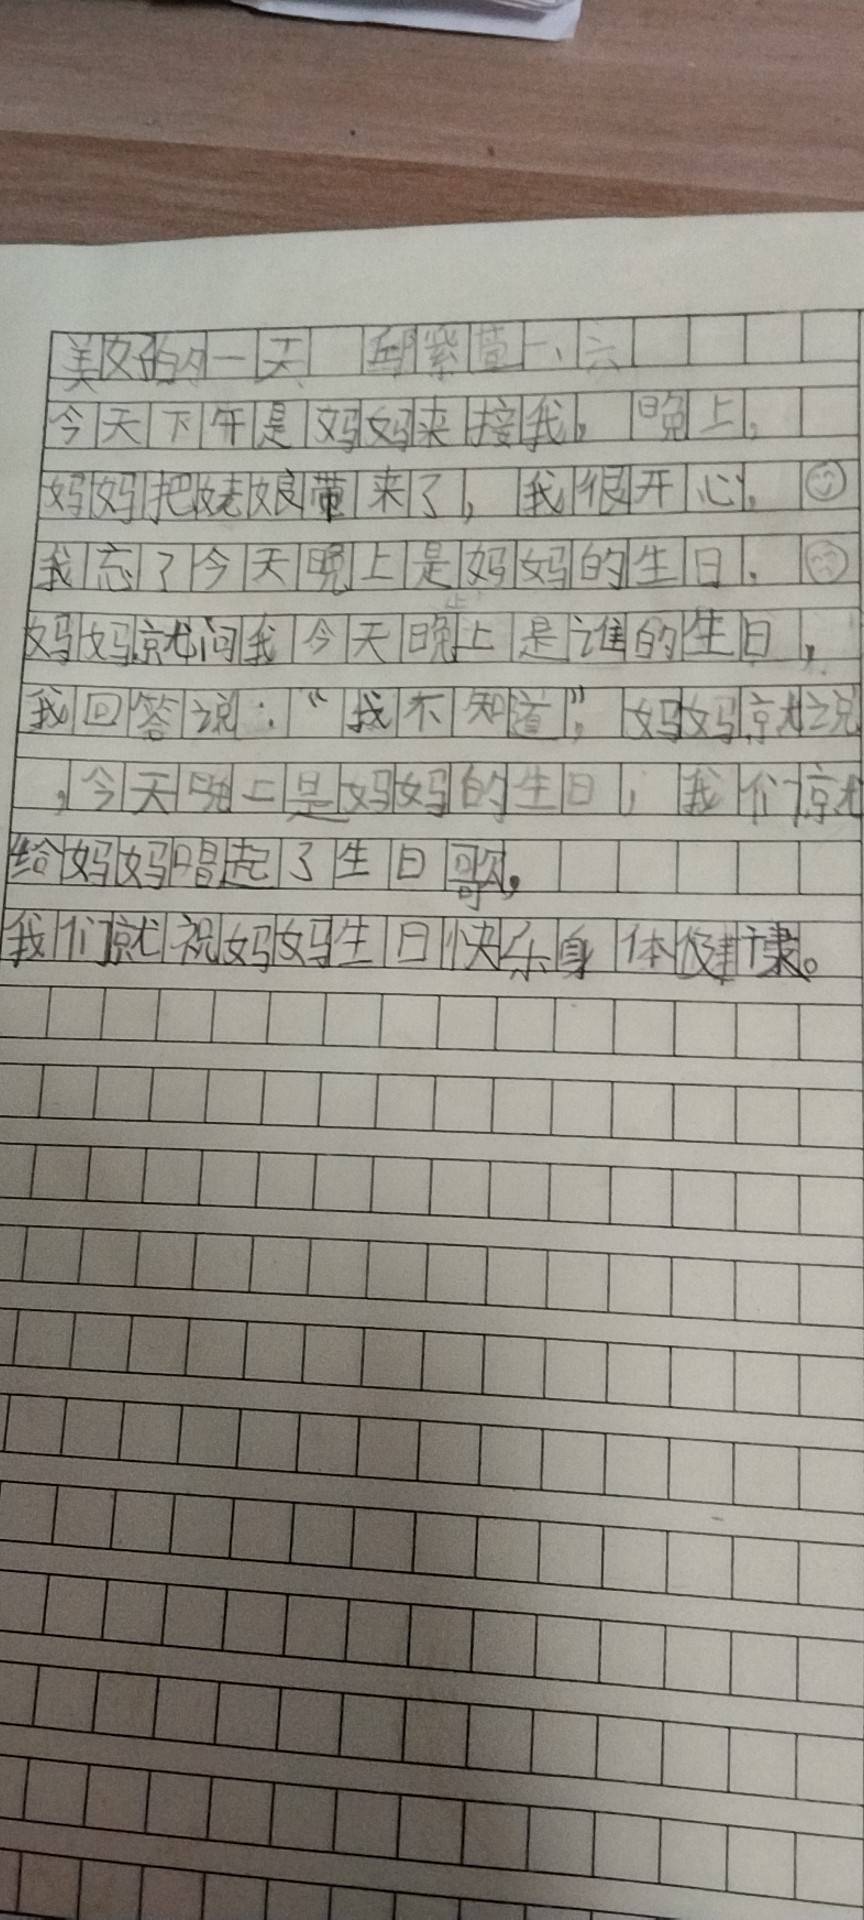 美好的一天 邱紫萱一、六
今天下午是妈妈来接我，晚上，
妈妈把姥娘带来了，我很开心。
我忘了今天晚上是妈妈的生日。
妈妈就问我今天晚上是谁的生日，
我回答说：“我不知道”，妈妈就说
，今天晚上是妈妈的生日，我们就
给妈妈唱起了生日歌，
我们就祝妈妈生日快乐身体健康。